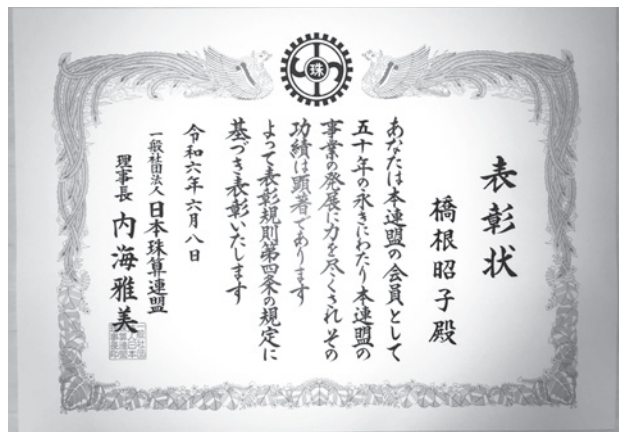 珠
表彰状
橋根昭子殿
あなたは本連盟の会員として
五十年の永きにわたり本連盟の
事業の発展に力を尽くされ その
功績は顕著であります
よって表彰規則第四条の規定に
基づき表彰いたします
令和六年六月八日
一般社団法人日本珠算連盟
理事長 内海雅美